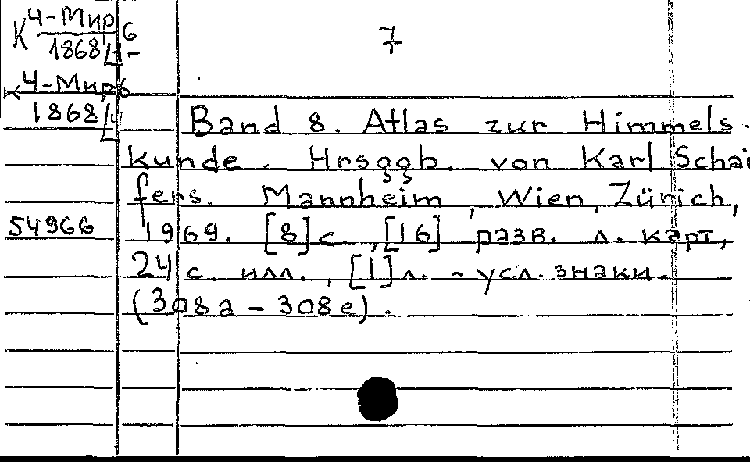 К 4-Мир 6
1868/L-
7
4-Мир6
1868/L
Band 8. Atlas zur Himmels-
kunde. Hrsggb. von Karl Schai
fers. Mannheim, Wien, Zürich,
54966
1969. [8] с., [16] разв. л. карт,
24 с. илл., [1] л. - усл. знаки.
(308a - 308e).